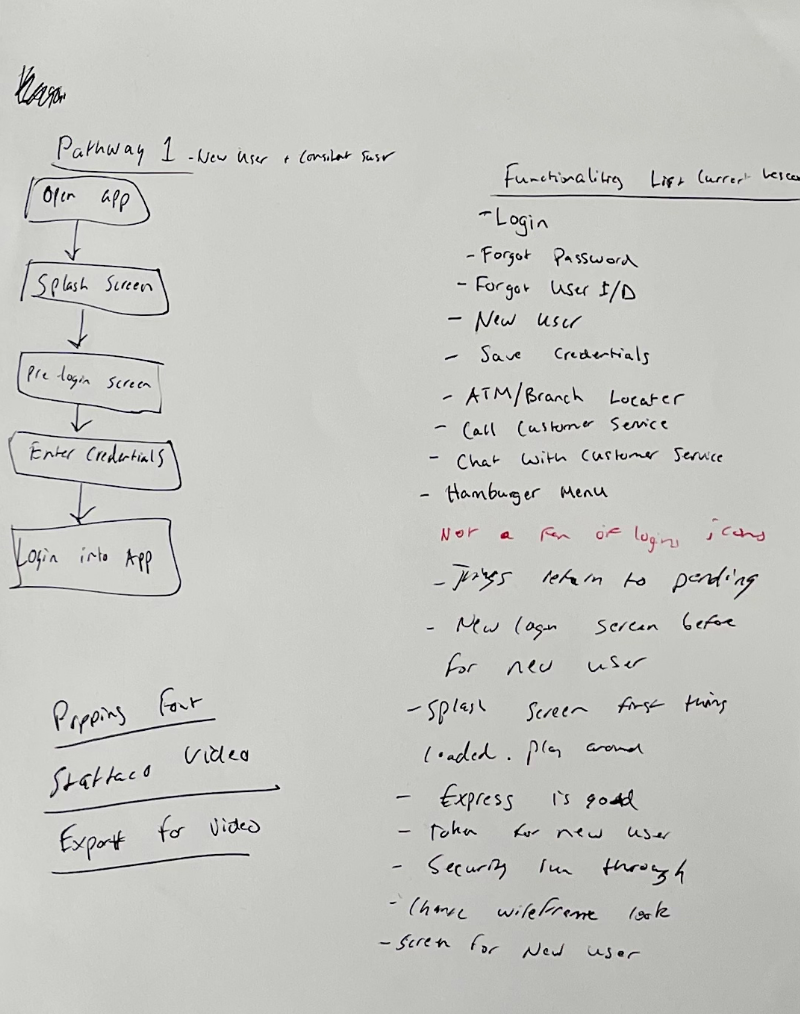 Pathway 1 - New User +
Open app
Splash Screen
Pre login screen
Enter Credentials
Login into App
Font
Video
Export for Video
Functionalities List Current
- Login
- Forgot Password
- Forgot User I/D
- New User
- Save Credentials
- ATM/Branch Locater
- Call Customer Service
- Chat with Customer Service
- Hamburger Menu
Not a fan of login icons
- return to pending
- New login screen before
for new user
- Splash screen first thing
loaded. play around
- Express is good
- Token for new user
- Security run through
- wireframe look
- Screen for New user